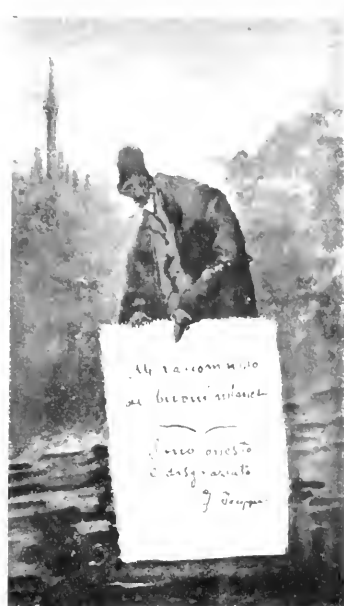 Mi racomando
ai buoni
Sono onesto
e disgraziato